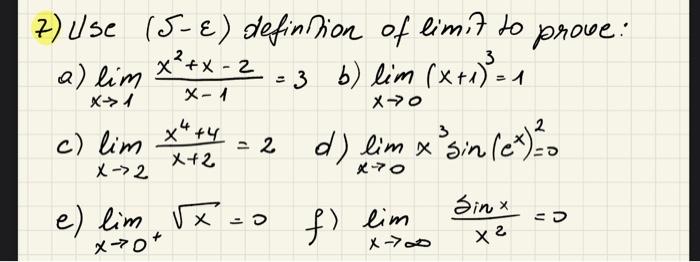 7) Use (δ-ε) definition of limit to prove:
a) lim x→1 (x²+x-2)/(x-1) = 3 b) lim x→0 (x+1)³ = 1
c) lim x→2 (x⁴+4)/(x+2) = 2 d) lim x→0 x³ sin(eˣ)² = 0
e) lim x→0⁺ √x = 0 f) lim x→∞ sin x/x² = 0